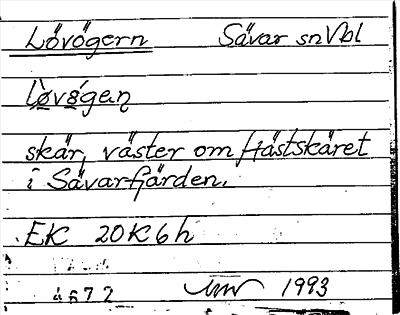 Lövögern Sävar sn Vbl
skär, väster om Hästskäret
i Sävarfjärden.
EK 20K6h
1993